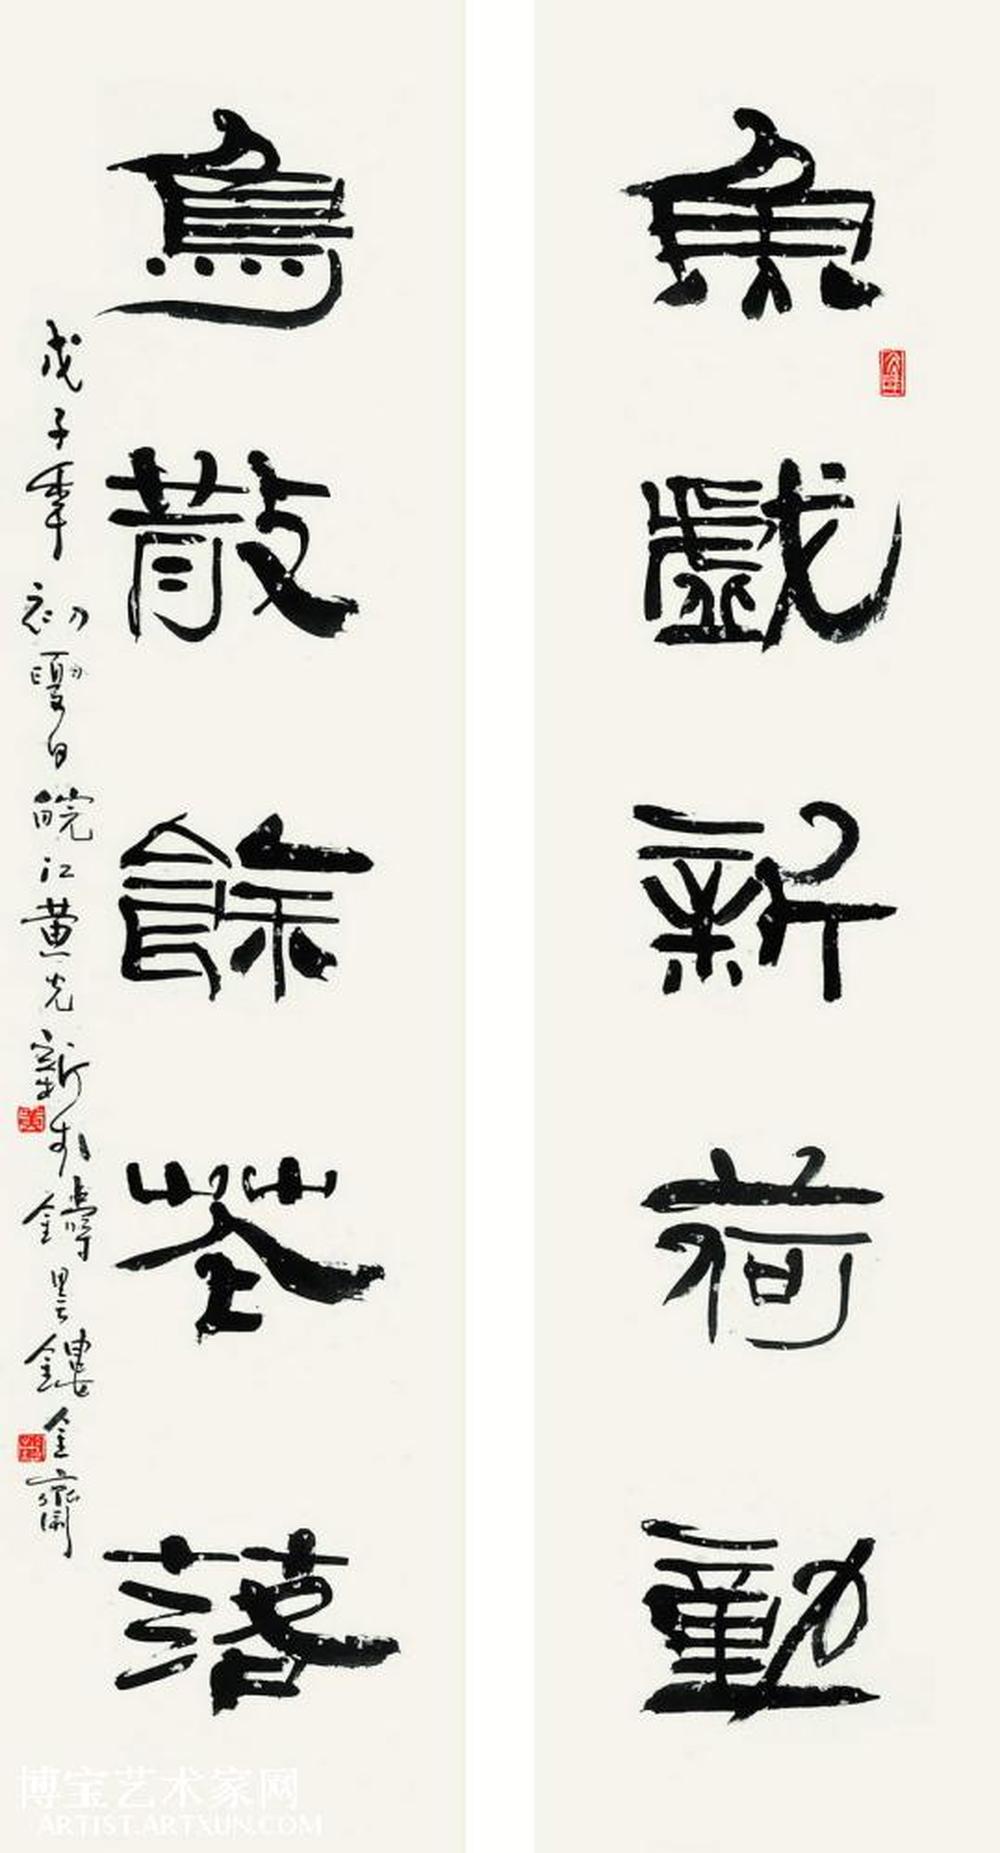 魚戲新荷動
鳥散餘花落
戊子年初夏日皖江黄先新於鑄墨鏤金齋
博宝艺术家网
ARTIST.ARTXUN.COM